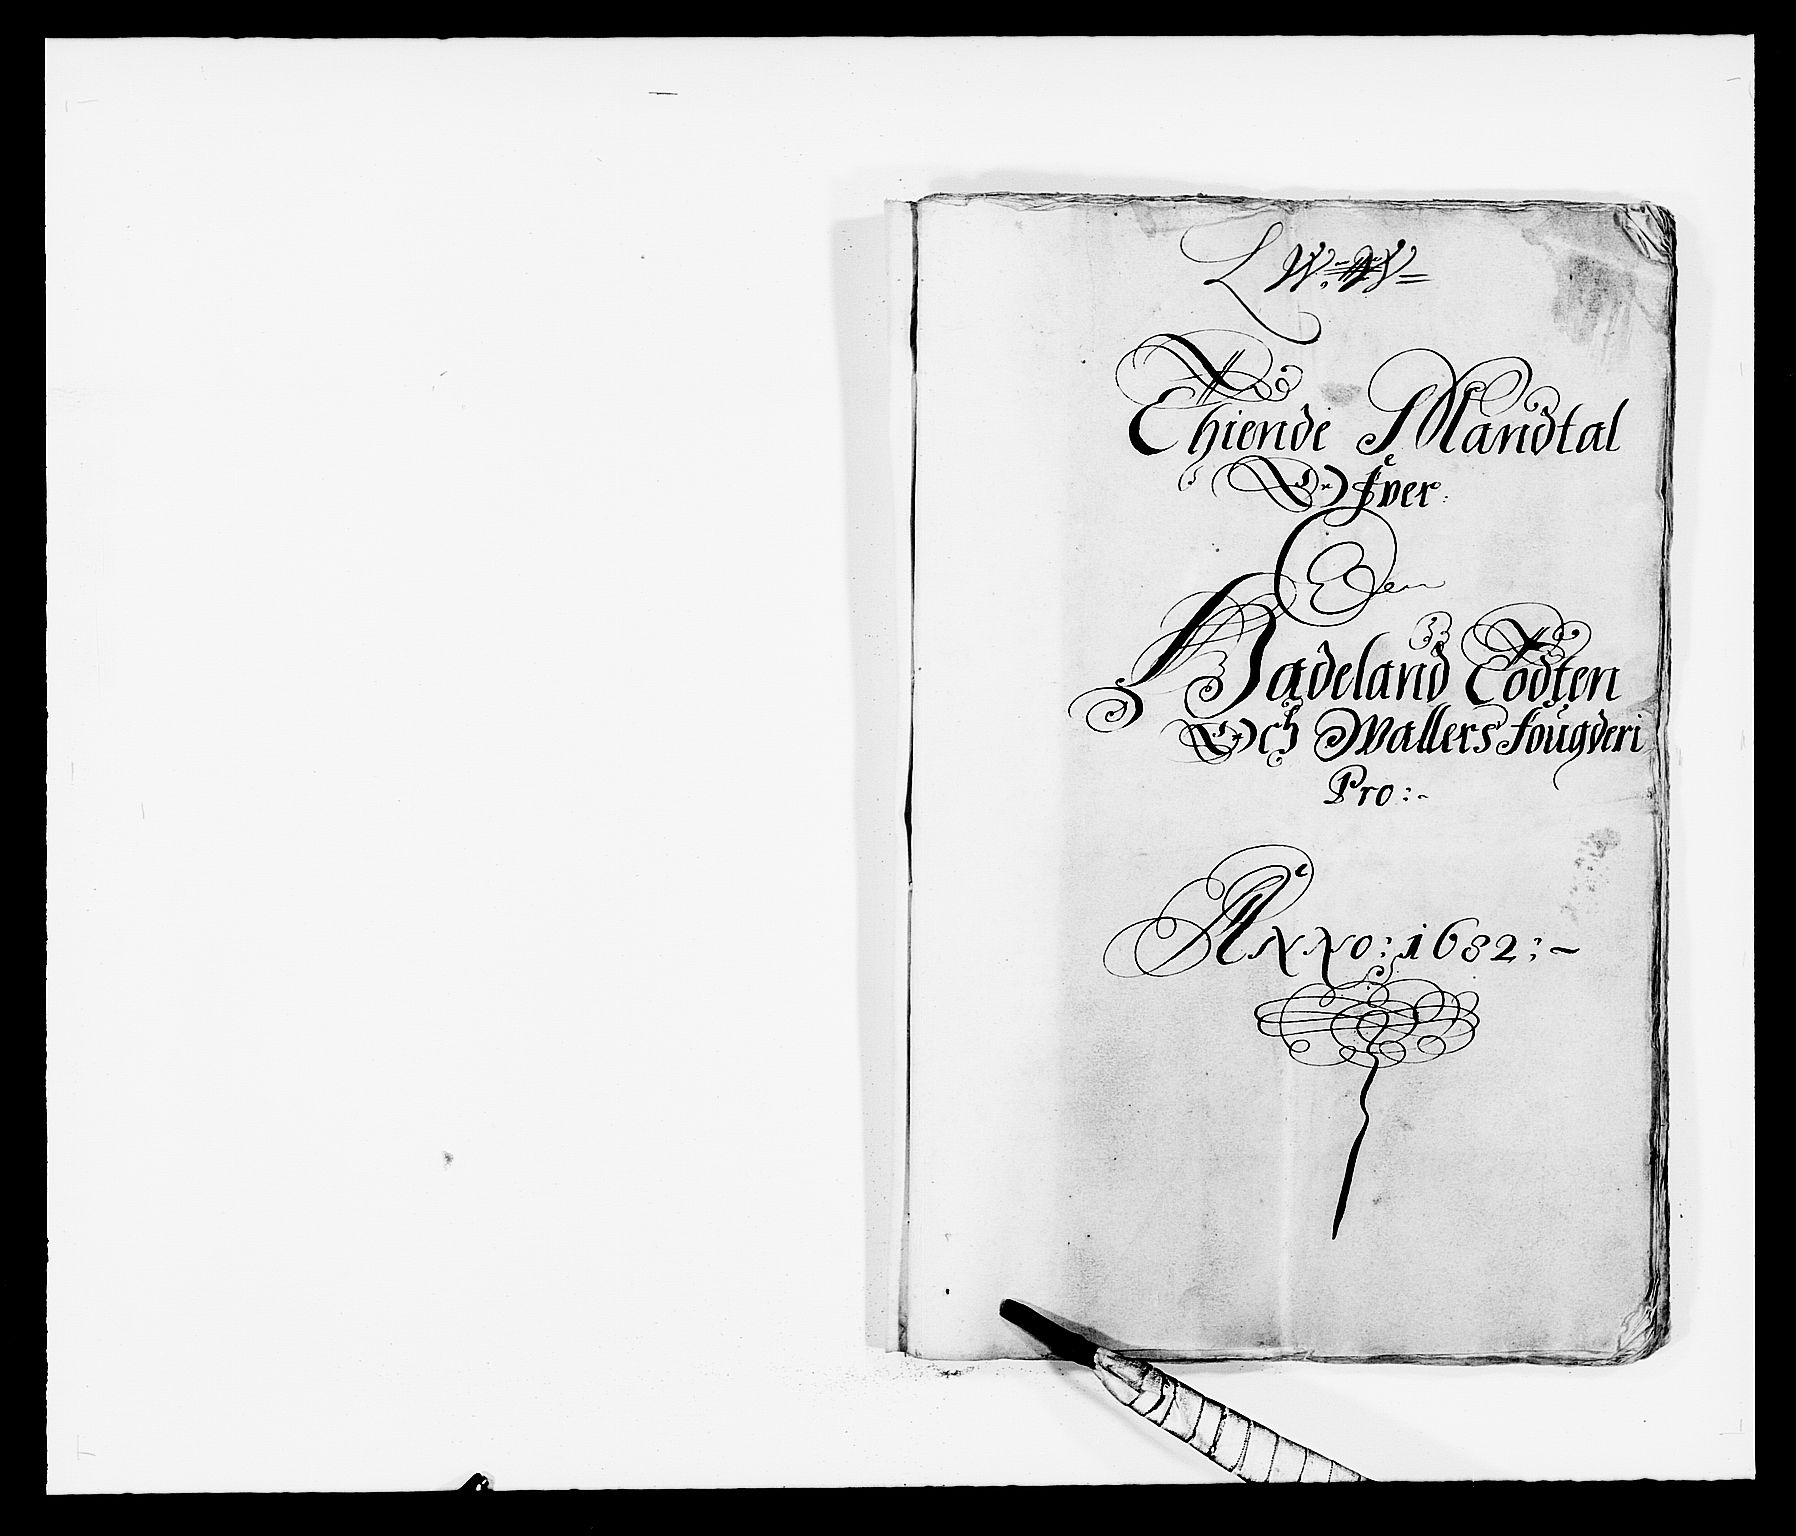 Thiende Mandtal
Ofver
Hadeland Todten
Och Wallers fougderi
Pro:-
Anno: 1682:-